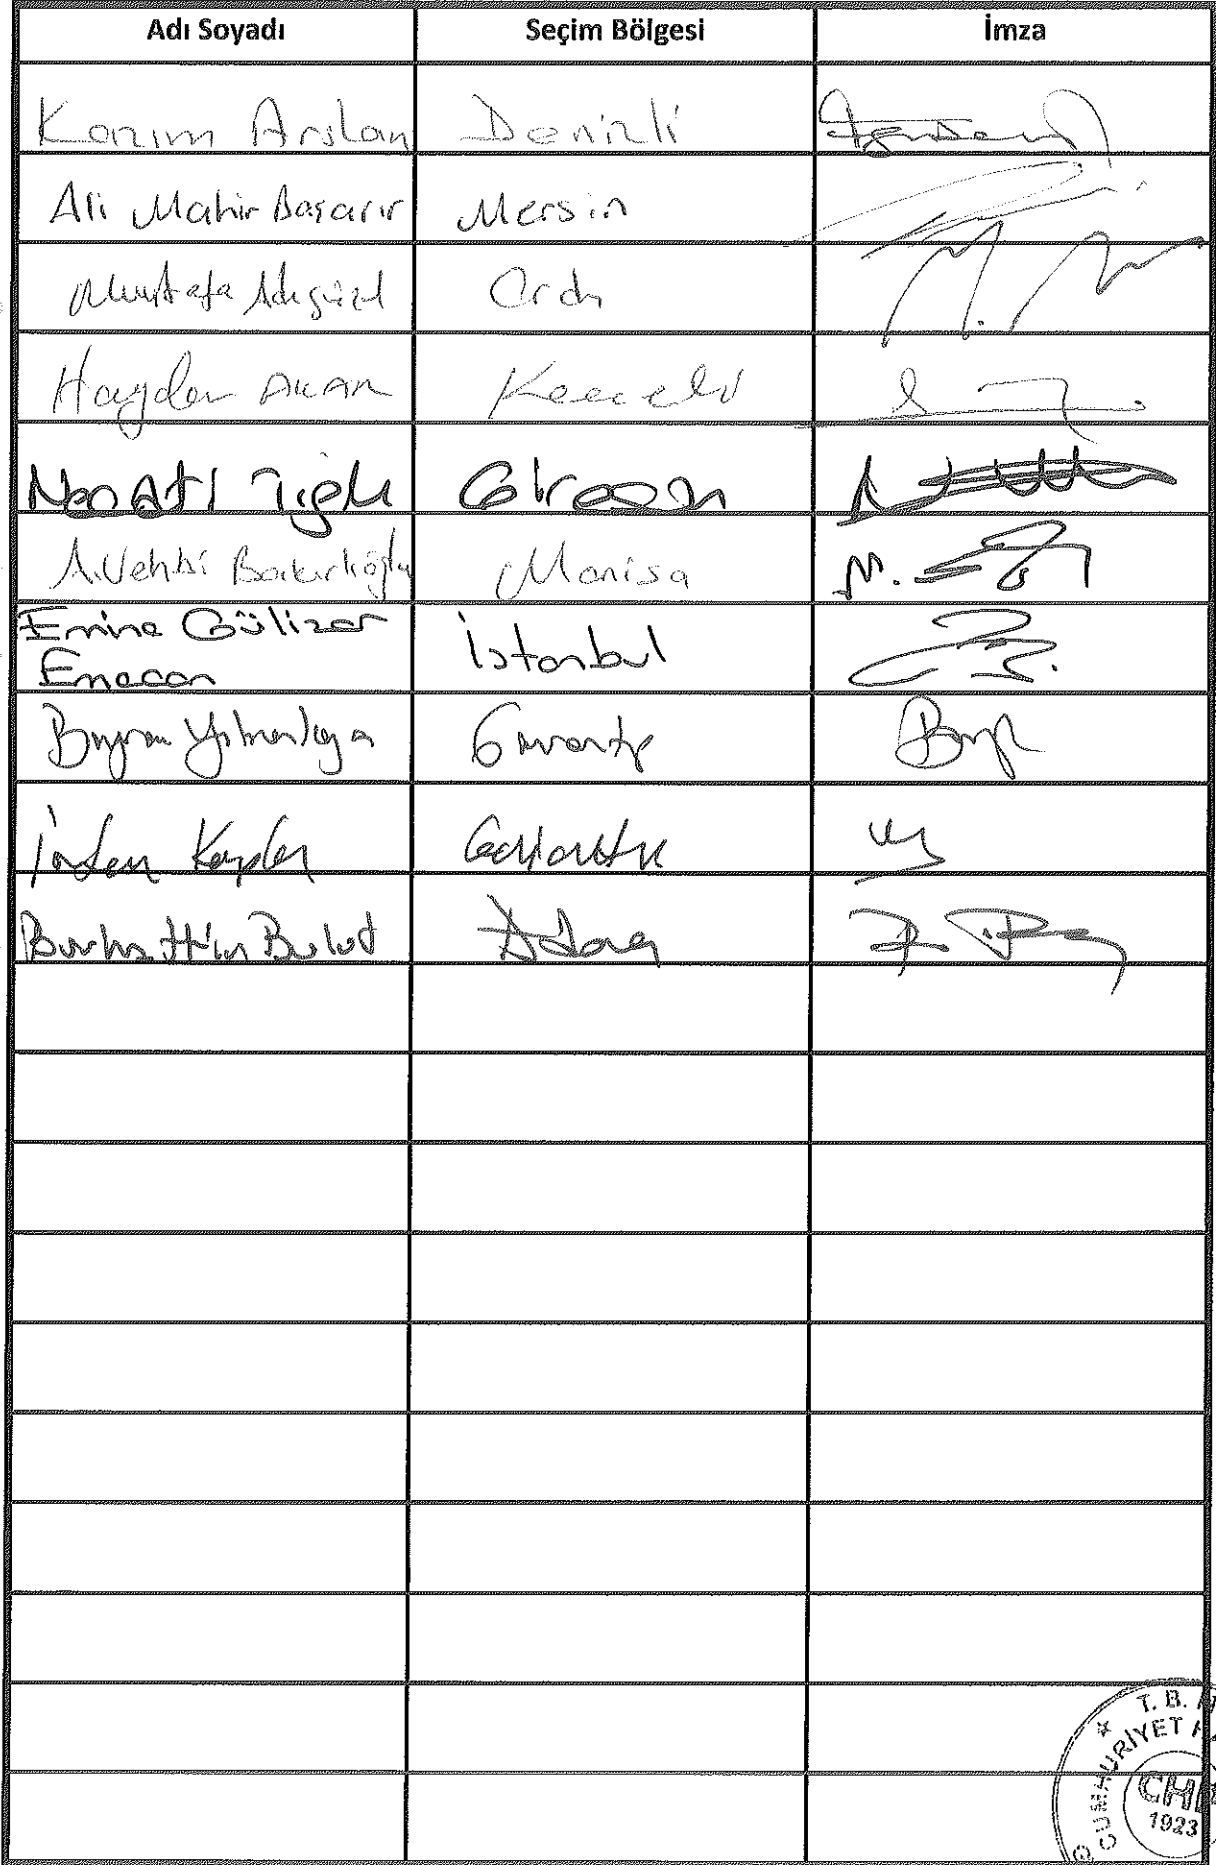 Adı Soyadı Seçim Bölgesi İmza
Kazım Arslan Denizli
Ali Mahir Başarır Mersin
Mustafa Adıgüzel Ordu
Haydar Akar Kocaeli
Necati Tığlı Giresun
A.Vehbi Bakırlıoğlu Manisa
Emine Gülizar
Emecan İstanbul
Bayram Yılmazkaya Gaziantep
İrfan Kaplan Gaziantep
Burhanettin Bulut Adana
T. B. M
CUMHURİYET H
CHP
1923